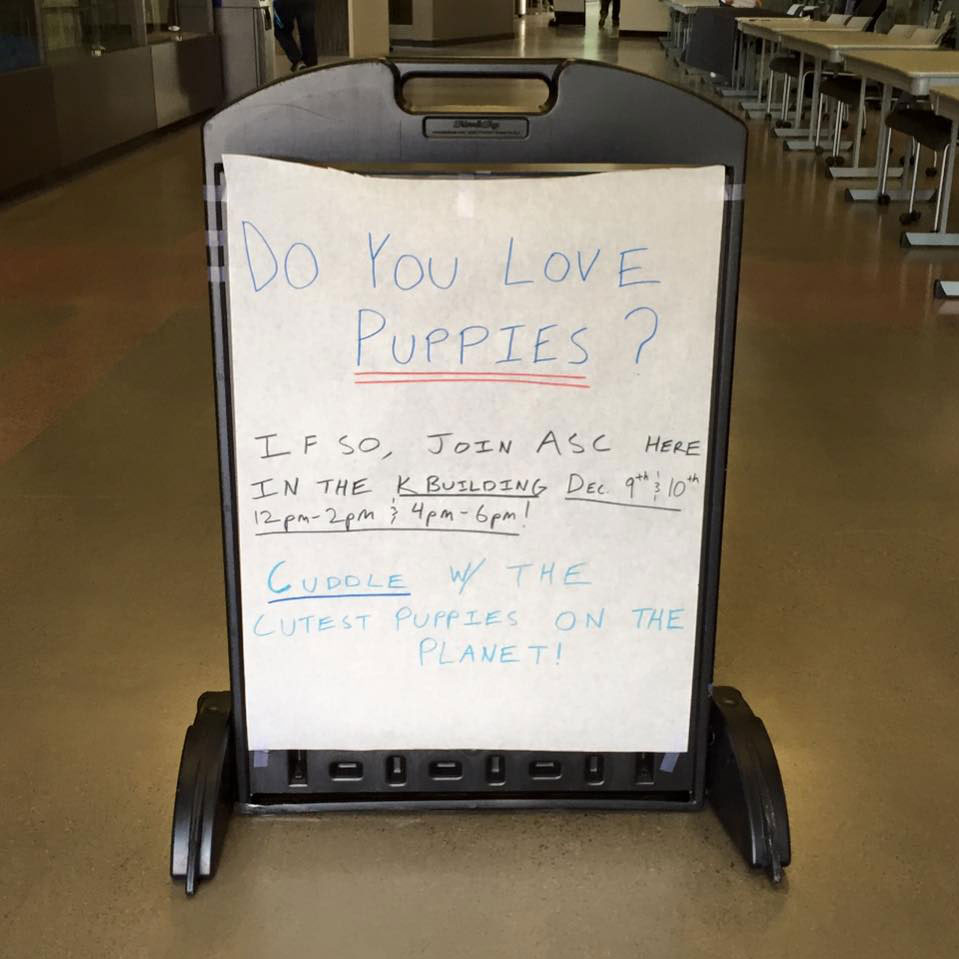 DO YOU LOVE
PUPPIES?
IF SO, JOIN ASC HERE
IN THE K BUILDING DEC. 9th & 10th
12pm-2pm & 4pm-6pm!
CUDDLE W/ THE
CUTEST PUPPIES ON THE
PLANET!